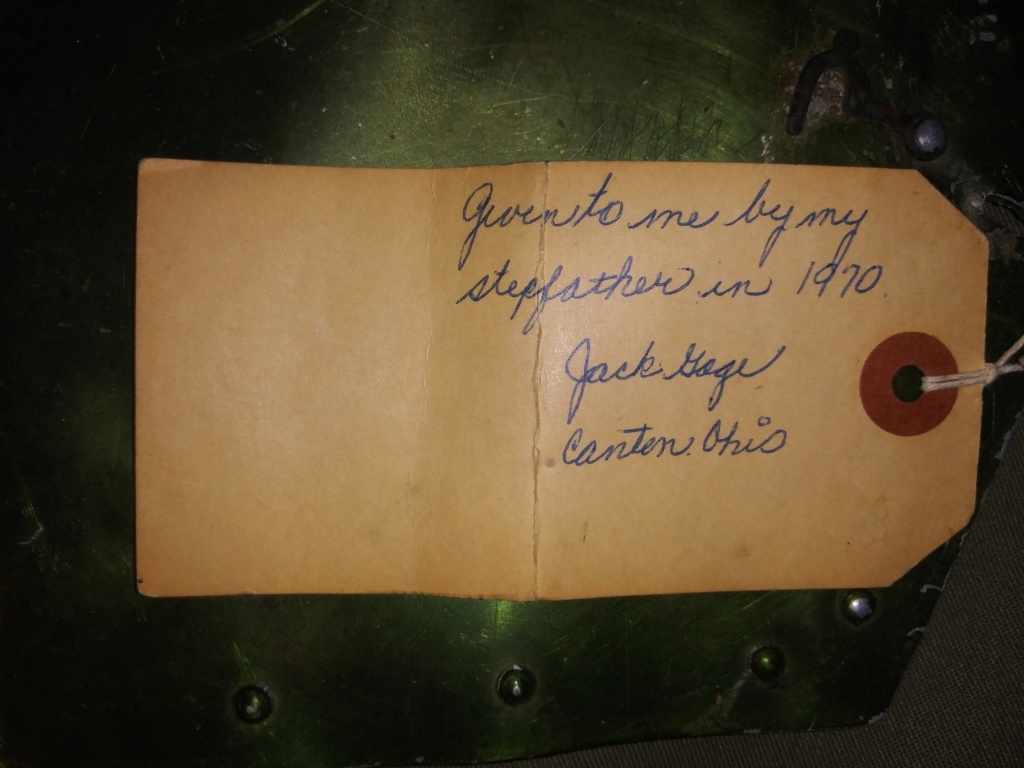 Given to me by my
stepfather in 1970
Jack Gage
Canton Ohio